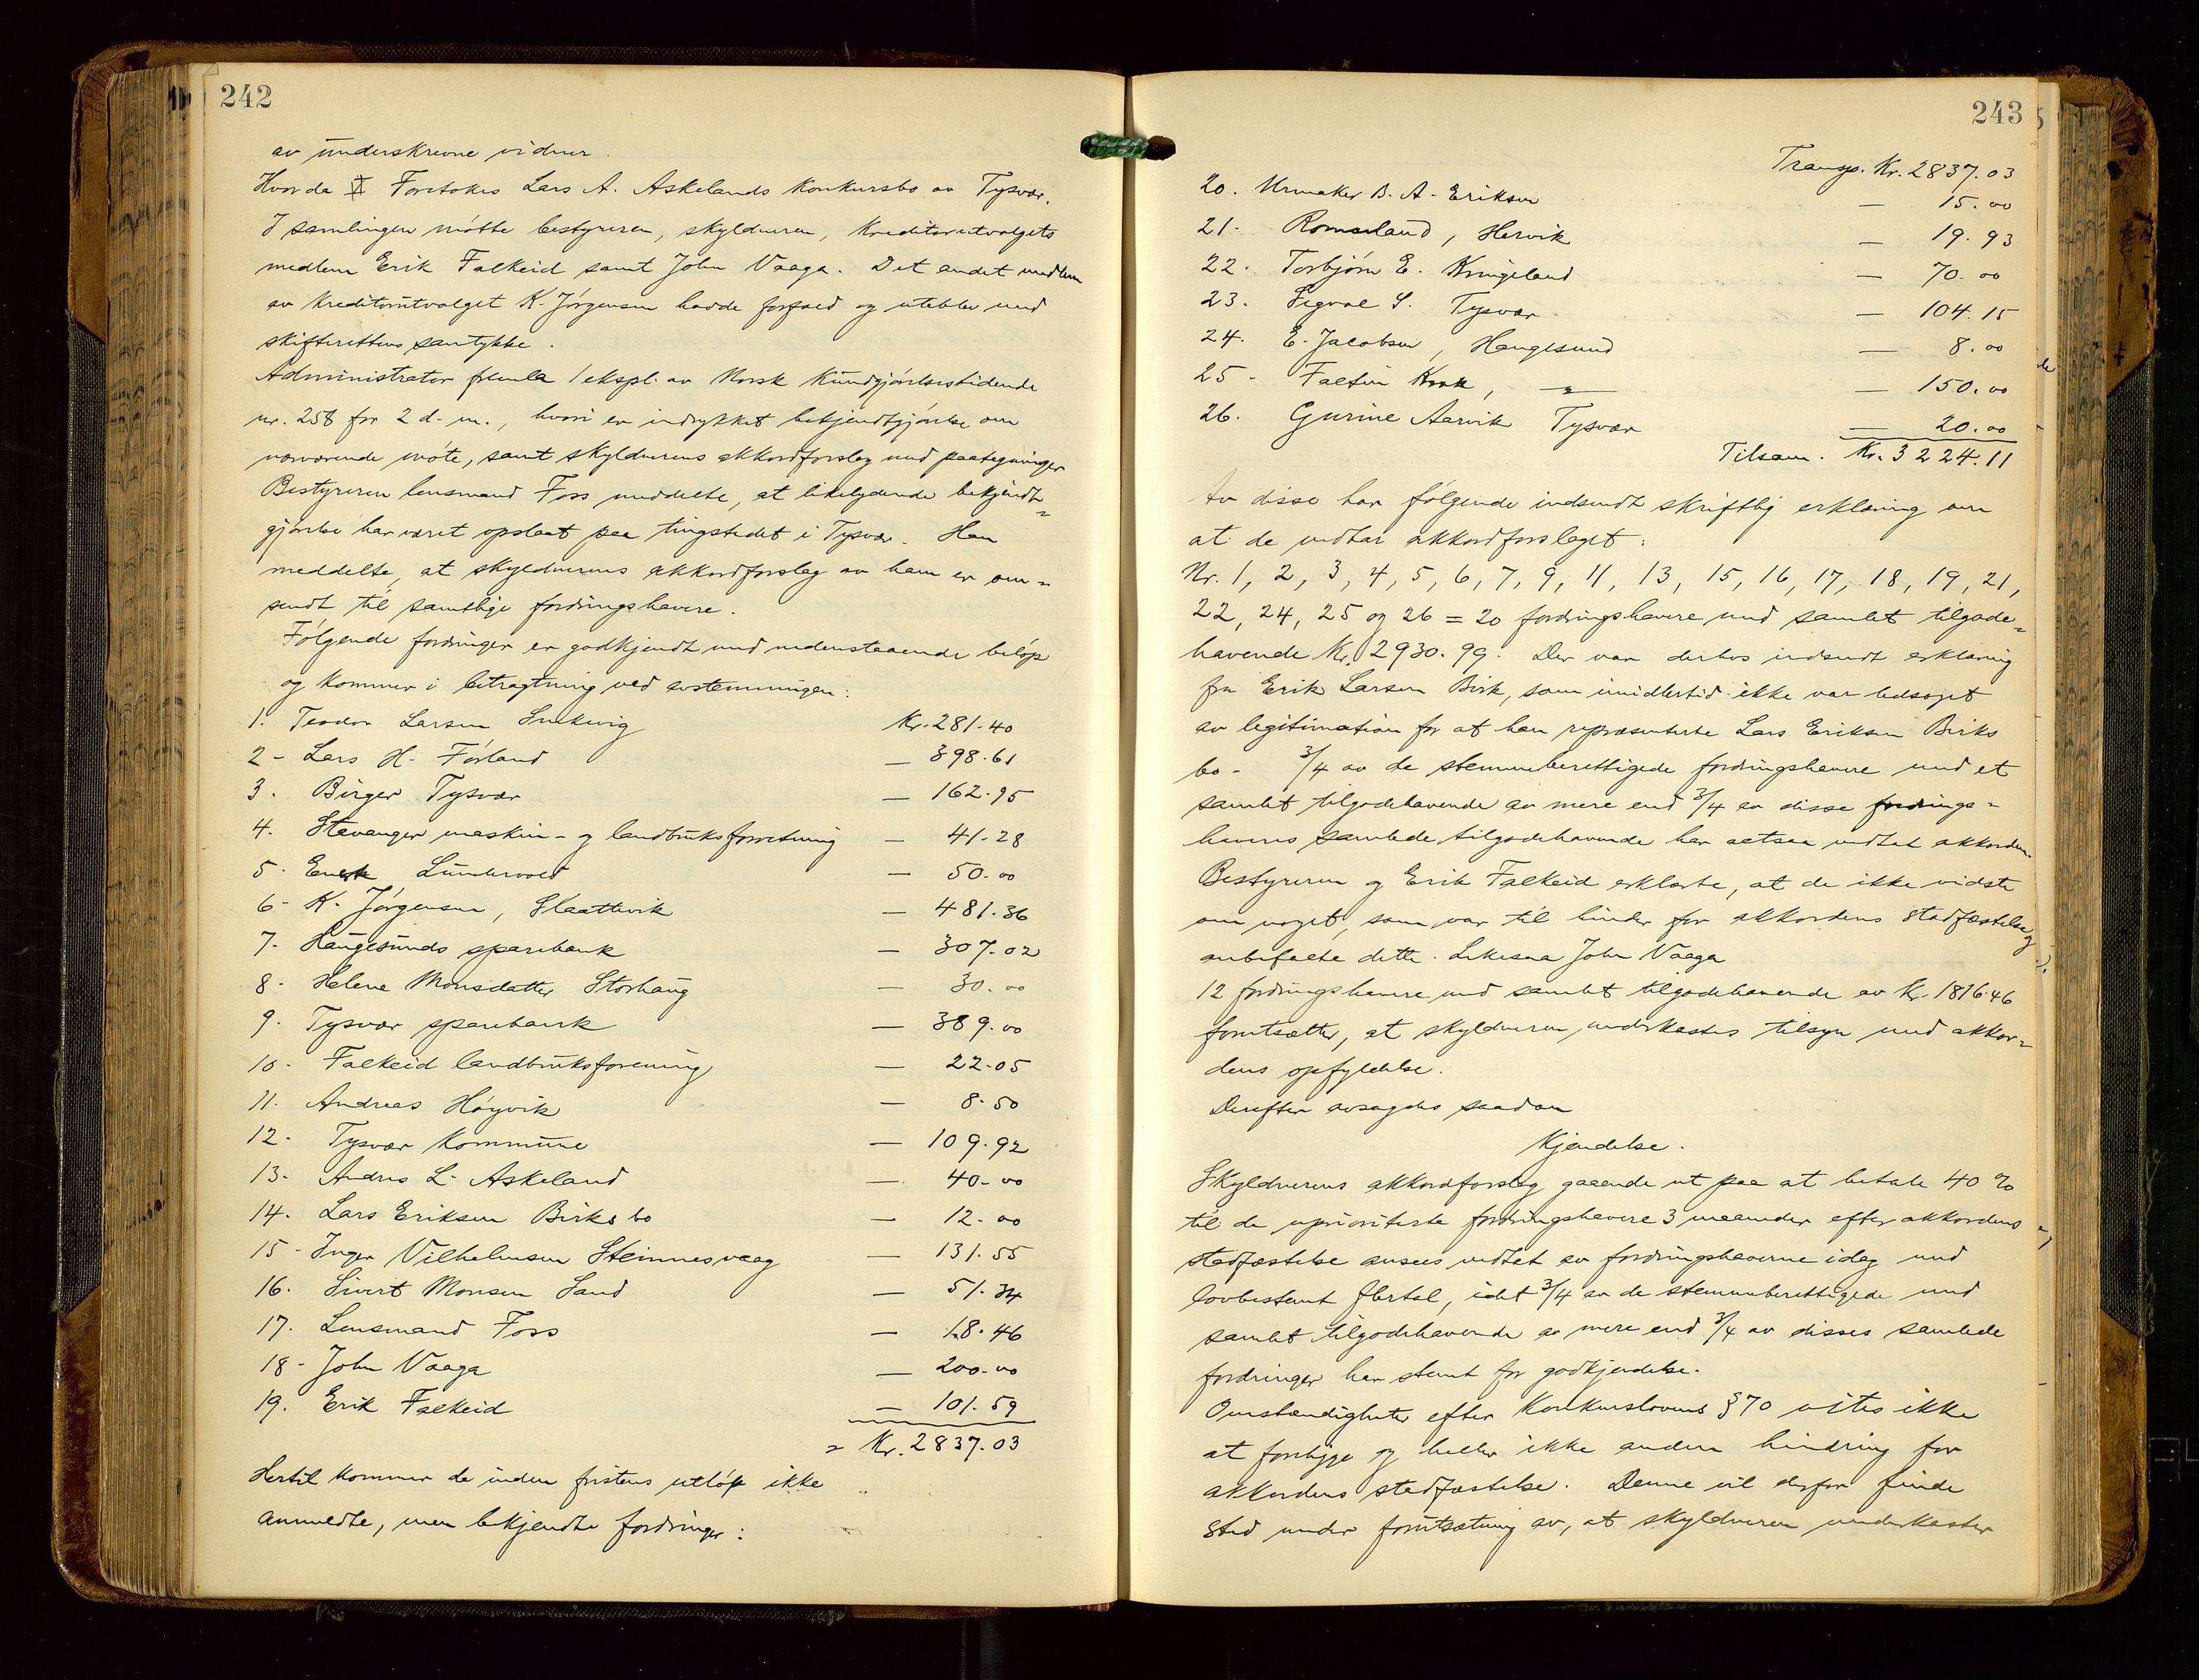 242
av underskrevne vidner.
Hvorda X Foretokes Lars A. Askelands konkursbo av Tysvær.
I samlingen møtte bestyreren, skyldneren, kreditorutvalgets
medlem Erik Falkeid samt John Vaaga. Det andet medlem
av kreditorutvalget K. Jørgensen hadde forfald og uteblev med
skifterettens samtykke.
Administrator fremla 1 ekspl. av Norsk Kundgjørelsestidende
nr. 258 for 2 d. m., hvori er indrykket bekjendtgjørelse om
nærværende møte, samt skyldnerens akkordforslag med paategninger
Bestyreren lensmand Foss meddelte, at likelydende bekjendt=
gjørelse har været opslaat paa tingstedet i Tysvær. Han
meddelte, at skyldnerens akkordforslag av ham er om=
sendt til samtlige fordringshavere.
Følgende fordringer er godkjendt med nedenstaaende beløp
og kommer i betragtning ved avstemningen:
1. Teodor Larsen Kr. 281.40
2 - Lars H. Førland — 398.61
3. Birger Tysvær — 162.95
4. Stavanger maskin- og landbruksforretning — 41.28
5. Lundervold — 50.00
6 - K. Jørgensen, Slaattevik — 481.36
7. Haugesunds sparebank — 307.02
8 - Helene Monsdatter Storhaug — 30.00
9. Tysvær sparebank — 389.00
10 - Falkeid landbruksforening — 22.05
11. Andreas Høyvik — 8.50
12 - Tysvær kommune — 109.92
13. Andreas L. Askeland — 40.00
14. Lars Eriksen Birks bo — 12.00
15 - Inger Vilhelmsen Steinnesvaag — 131.55
16. Sivert Monsen Sand — 51.34
17. Lensmand Foss — 18.46
18 - John Vaaga — 200.00
19. Erik Falkeid — 101.59
= Kr. 2837.03
Hertil kommer de inden fristens utløp ikke
anmeldte, men bekjendte fordringer:
243
Transp. Kr. 2837.03
20. Urmaker B. A. Eriksen — 15.00
21. Romsland, Hervik — 19.93
22. Torbjørn E. Kringeland — 70.00
23. Sigval S. Tysvær — 104.15
24. E. Jacobsen, Haugesund — 8.00
25 - Faltin Krak, —"— — 150.00
26. Gurine Aarvik Tysvær — 20.00
Tilsam. Kr. 3224.11
Av disse har følgende indsendt skriftlig erklæring om
at de vedtar akkordforslaget:
Nr. 1, 2, 3, 4, 5, 6, 7, 9, 11, 13, 15, 16, 17, 18, 19, 21,
22, 24, 25 og 26 = 20 fordringshavere med samlet tilgode=
havende Kr. 2930.99. Der var derhos indsendt erklæring
fra Erik Larsen Birk, som imidlertid ikke var ledsaget
av legitimation for at han repræsenterte Lars Eriksen Birks
bo - 3/4 av de stemmeberettigede fordringshavere med et
samlet tilgodehavende av mere end 3/4 av disse fordrings=
haveres samlede tilgodehavende har altsaa vedtat akkorden.
Bestyreren og Erik Falkeid erklærte, at de ikke vidste
om noget, som var til hinder for akkordens stadfæstelse og
anbefalte dette. Likesaa John Vaaga
12 fordringshavere med samlet tilgodehavende av Kr. 1816.46
forutsætter, at skyldneren underkastes tilsyn med akkor=
dens opfyldelse.
Derefter avsagdes saadan
Kjendelse.
Skyldnerens akkordforslag gaaende ut paa at betale 40 %
til de uprioriterte fordringshavere 3 maaneder efter akkordens
stadfæstelse ansees vedtat av fordringshaverne idag med
lovbestemt flertal, idet 3/4 av de stemmeberettigede med
samlet tilgodehavende av mere end 3/4 av disses samlede
fordringer har stemt for godkjendelse.
Omstændigheter efter Konkurslovens § 70 vites ikke
at foreligge og heller ikke anden hindring for
akkordens stadfæstelse. Denne vil derfor finde
sted under forutsætning av, at skyldneren underkaster